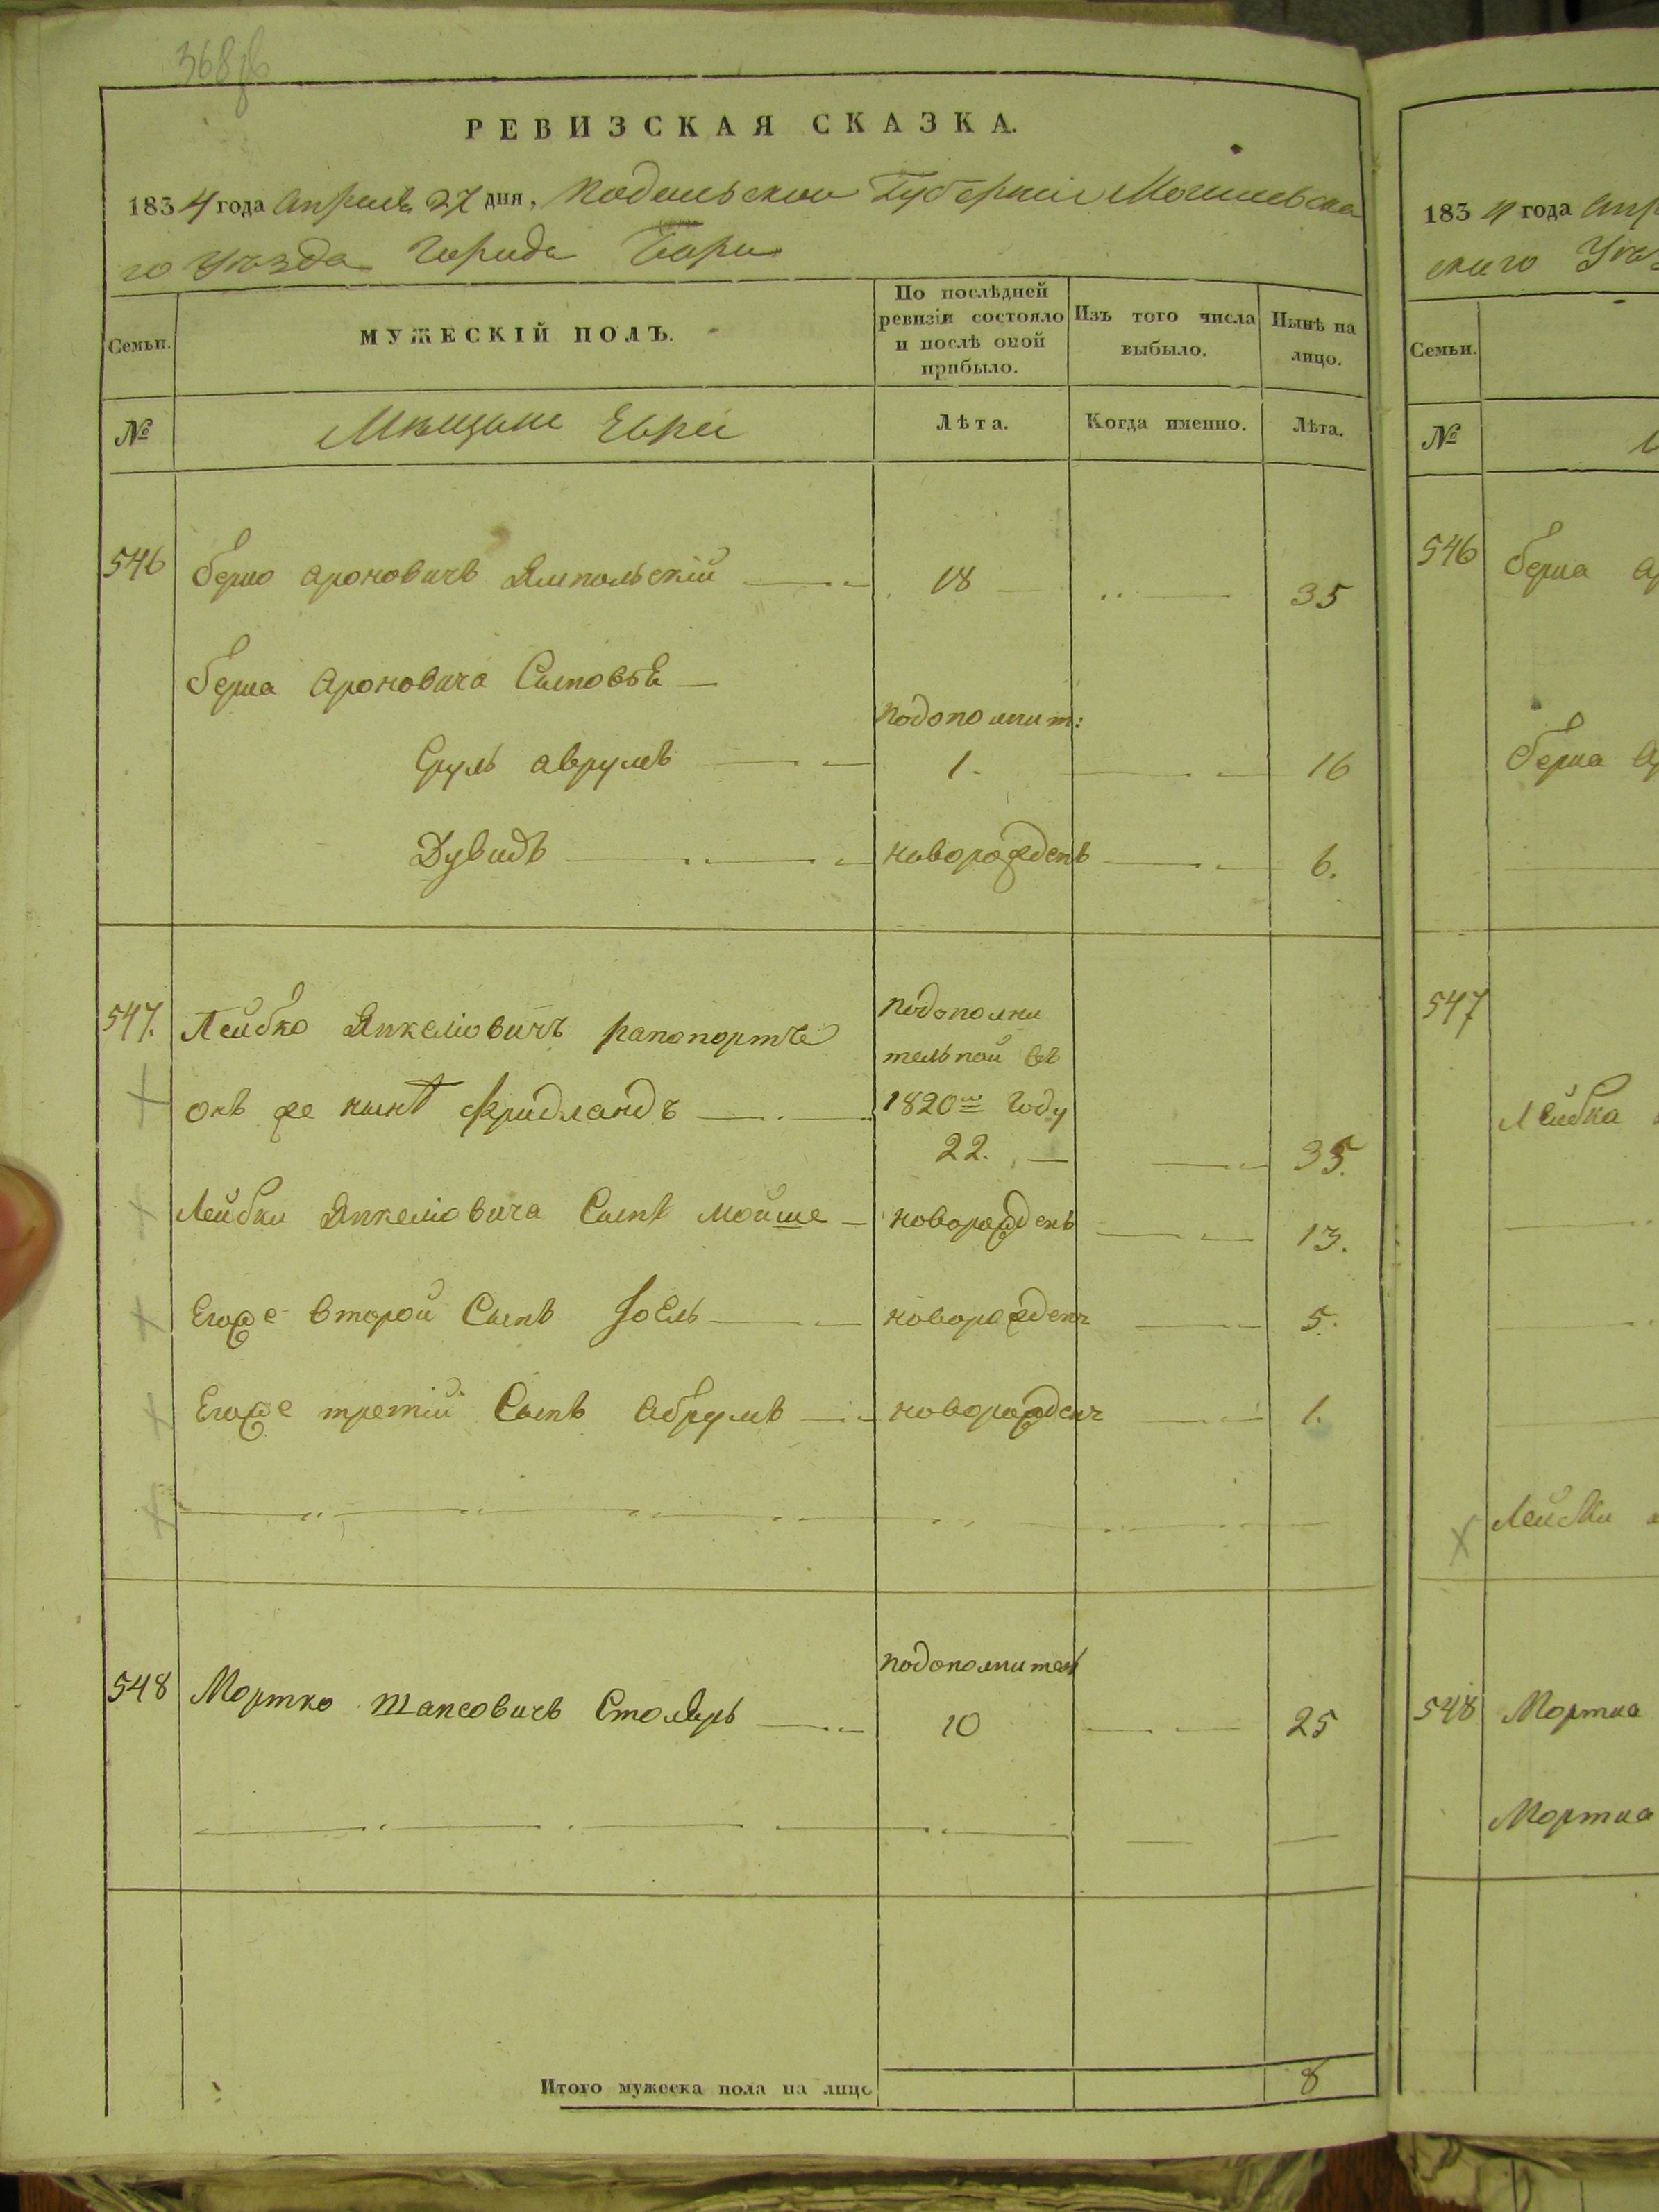 РЕВИЗСКАЯ СКАЗКА.
1834 года Апреля 27 дня, Подольской Губерніи Могилевска
го Уѣзда Города Бара
Семьи.
МУЖЕСКІЙ ПОЛЪ.
По послѣдней
ревизіи состояло
и послѣ оной
прибыло.
Изъ того числа
выбыло.
Нынѣ на
лицо.
№
Мѣщане Евреи
Лѣта.
Когда именно.
Лѣта.
546 Берко Ароновичъ Ямпольскій 18 35
Берка Ароновича Сыновья
подополнит:
Сруль Аврумъ 1. 16
Дувидъ новорожденъ 6.
547. Лейбко Янкеліовичъ рапопортъ
подополни
тельной въ
онъ же нынѣ Фридландъ 1820м Году
22. 35.
Лейбки Янкеліовича Сынъ Мойше новорожденъ 13.
Егоже второй Сынъ Іоель новорожденъ 5.
Егоже третій Сынъ Абрумъ новорожденъ 1.
подополнител
548 Мортко Шапсовичъ Столяръ 10 25
Итого мужеска пола на лицо 8
183 4 года Апр
скаго Уѣз
Семьи.
№
546 Берка Ар
Берка Ар
547
Лейбка
Лейбки
548 Мортка
Мортка